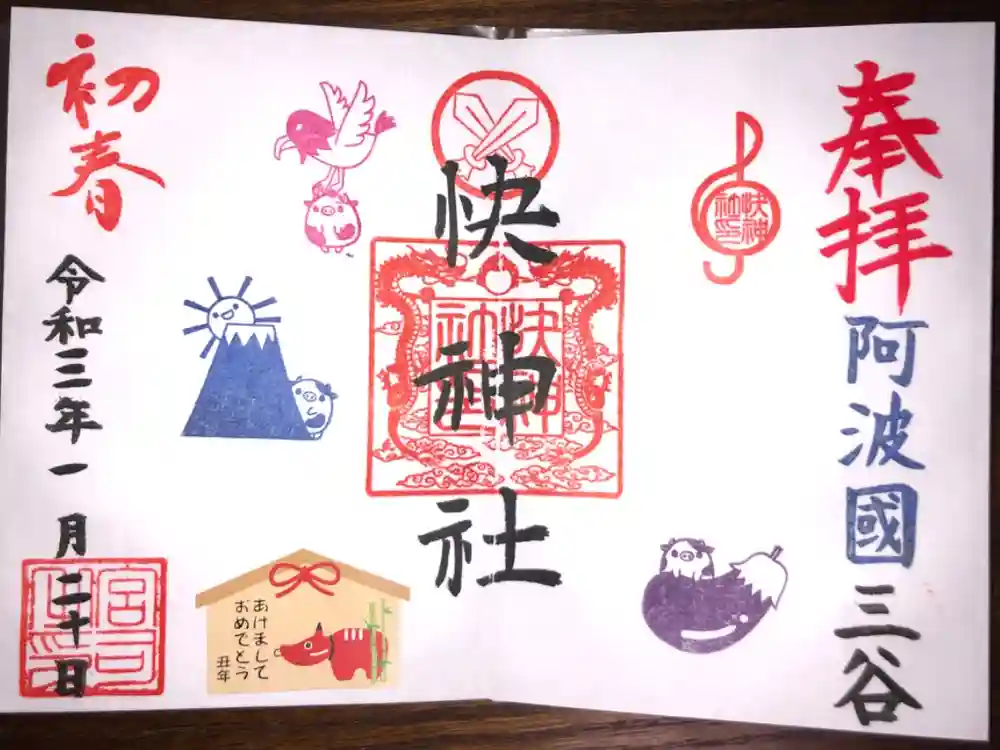 奉拝
阿波國三谷
快神社印
快神社
快神社印
初春
令和三年一月二十日
宮司之印
あけまして
おめでとう
丑年